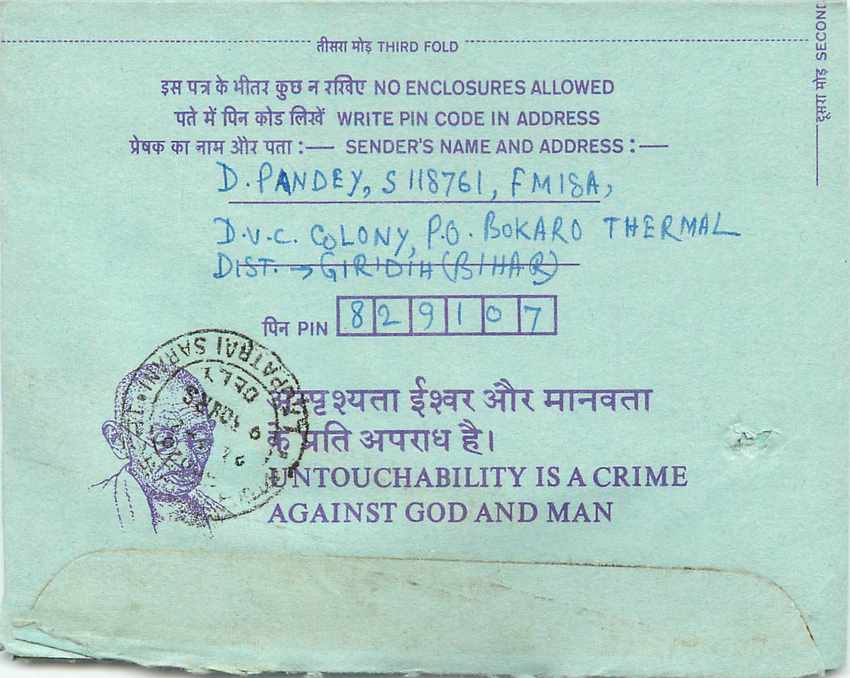 तीसरा मोड़ THIRD FOLD
दूसरा मोड़ SECOND
इस पत्र के भीतर कुछ न रखिए NO ENCLOSURES ALLOWED
पते में पिन कोड लिखें WRITE PIN CODE IN ADDRESS
प्रेषक का नाम और पता :— SENDER'S NAME AND ADDRESS :—
D. PANDEY, S 118761, FM18A,
D.V.C. COLONY, P.O. BOKARO THERMAL
DIST. → GIRIDIH (BIHAR)
पिन PIN 829107
अस्पृश्यता ईश्वर और मानवता
के प्रति अपराध है।
UNTOUCHABILITY IS A CRIME
AGAINST GOD AND MAN
LAJPATRAI SARANI
DELY